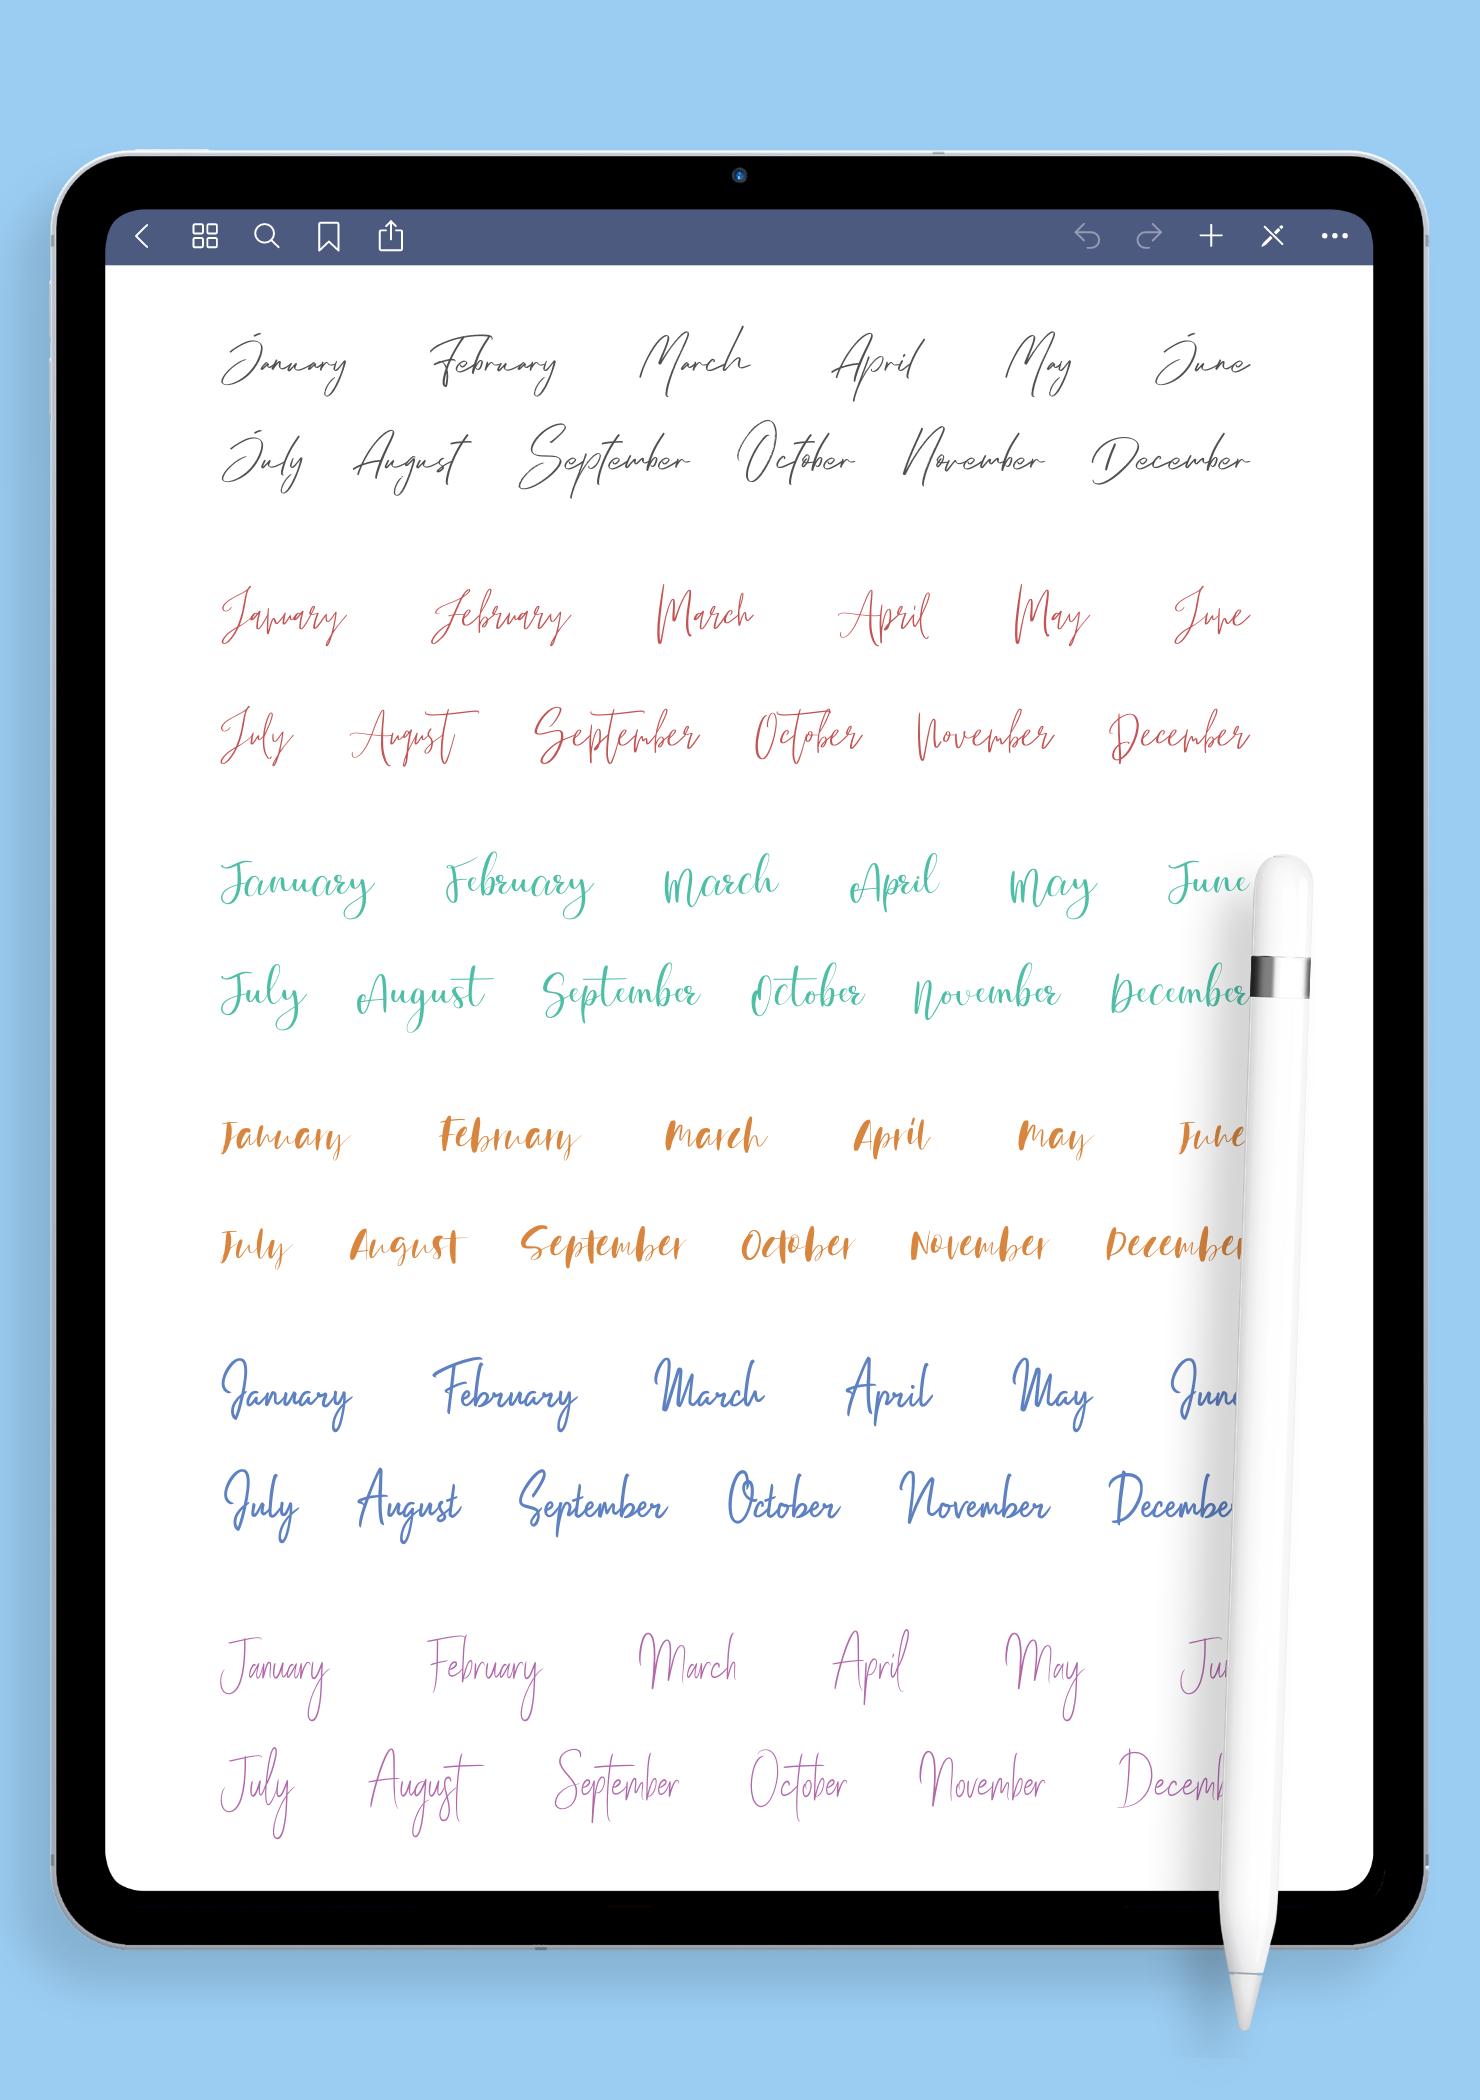 January February March April May June
July August September October November December
January February March April May June
July August September October November December
January February March April May June
July August September October November December
January February March April May June
July August September October November December
January February March April May Jun
July August September October November Decembe
January February March April May Ju
July August September October November Decem